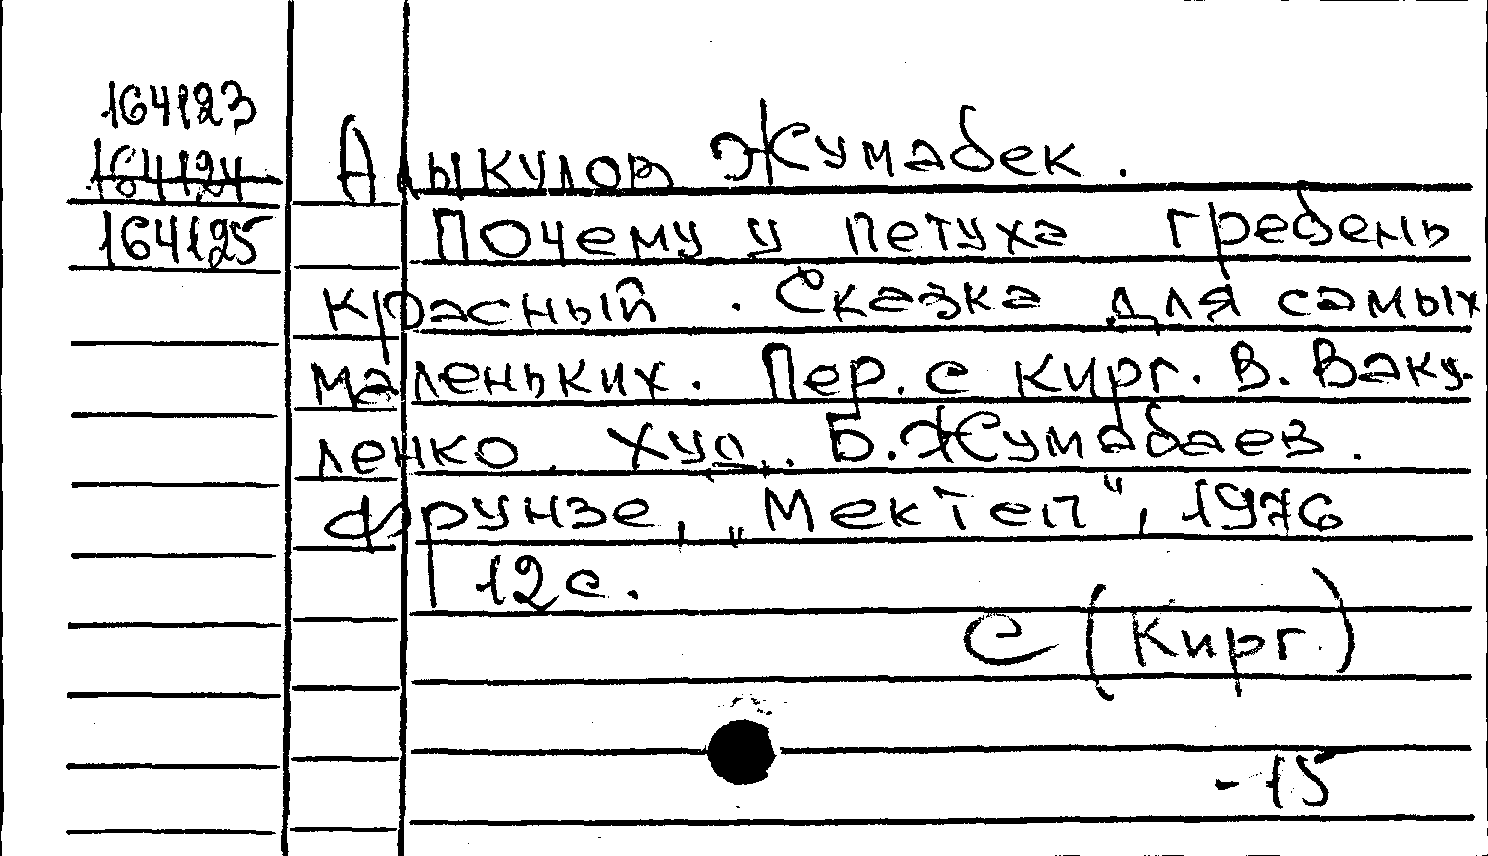 164123
164124
164125
Алыкулов Жумабек.
Почему у петуха гребень
красный. Сказка для самых
маленьких. Пер. с кирг. В. Ваку-
ленко. Худ. Б. Жумабаев.
Фрунзе, „Мектеп", 1976
12с.
С (Кирг.)
-15